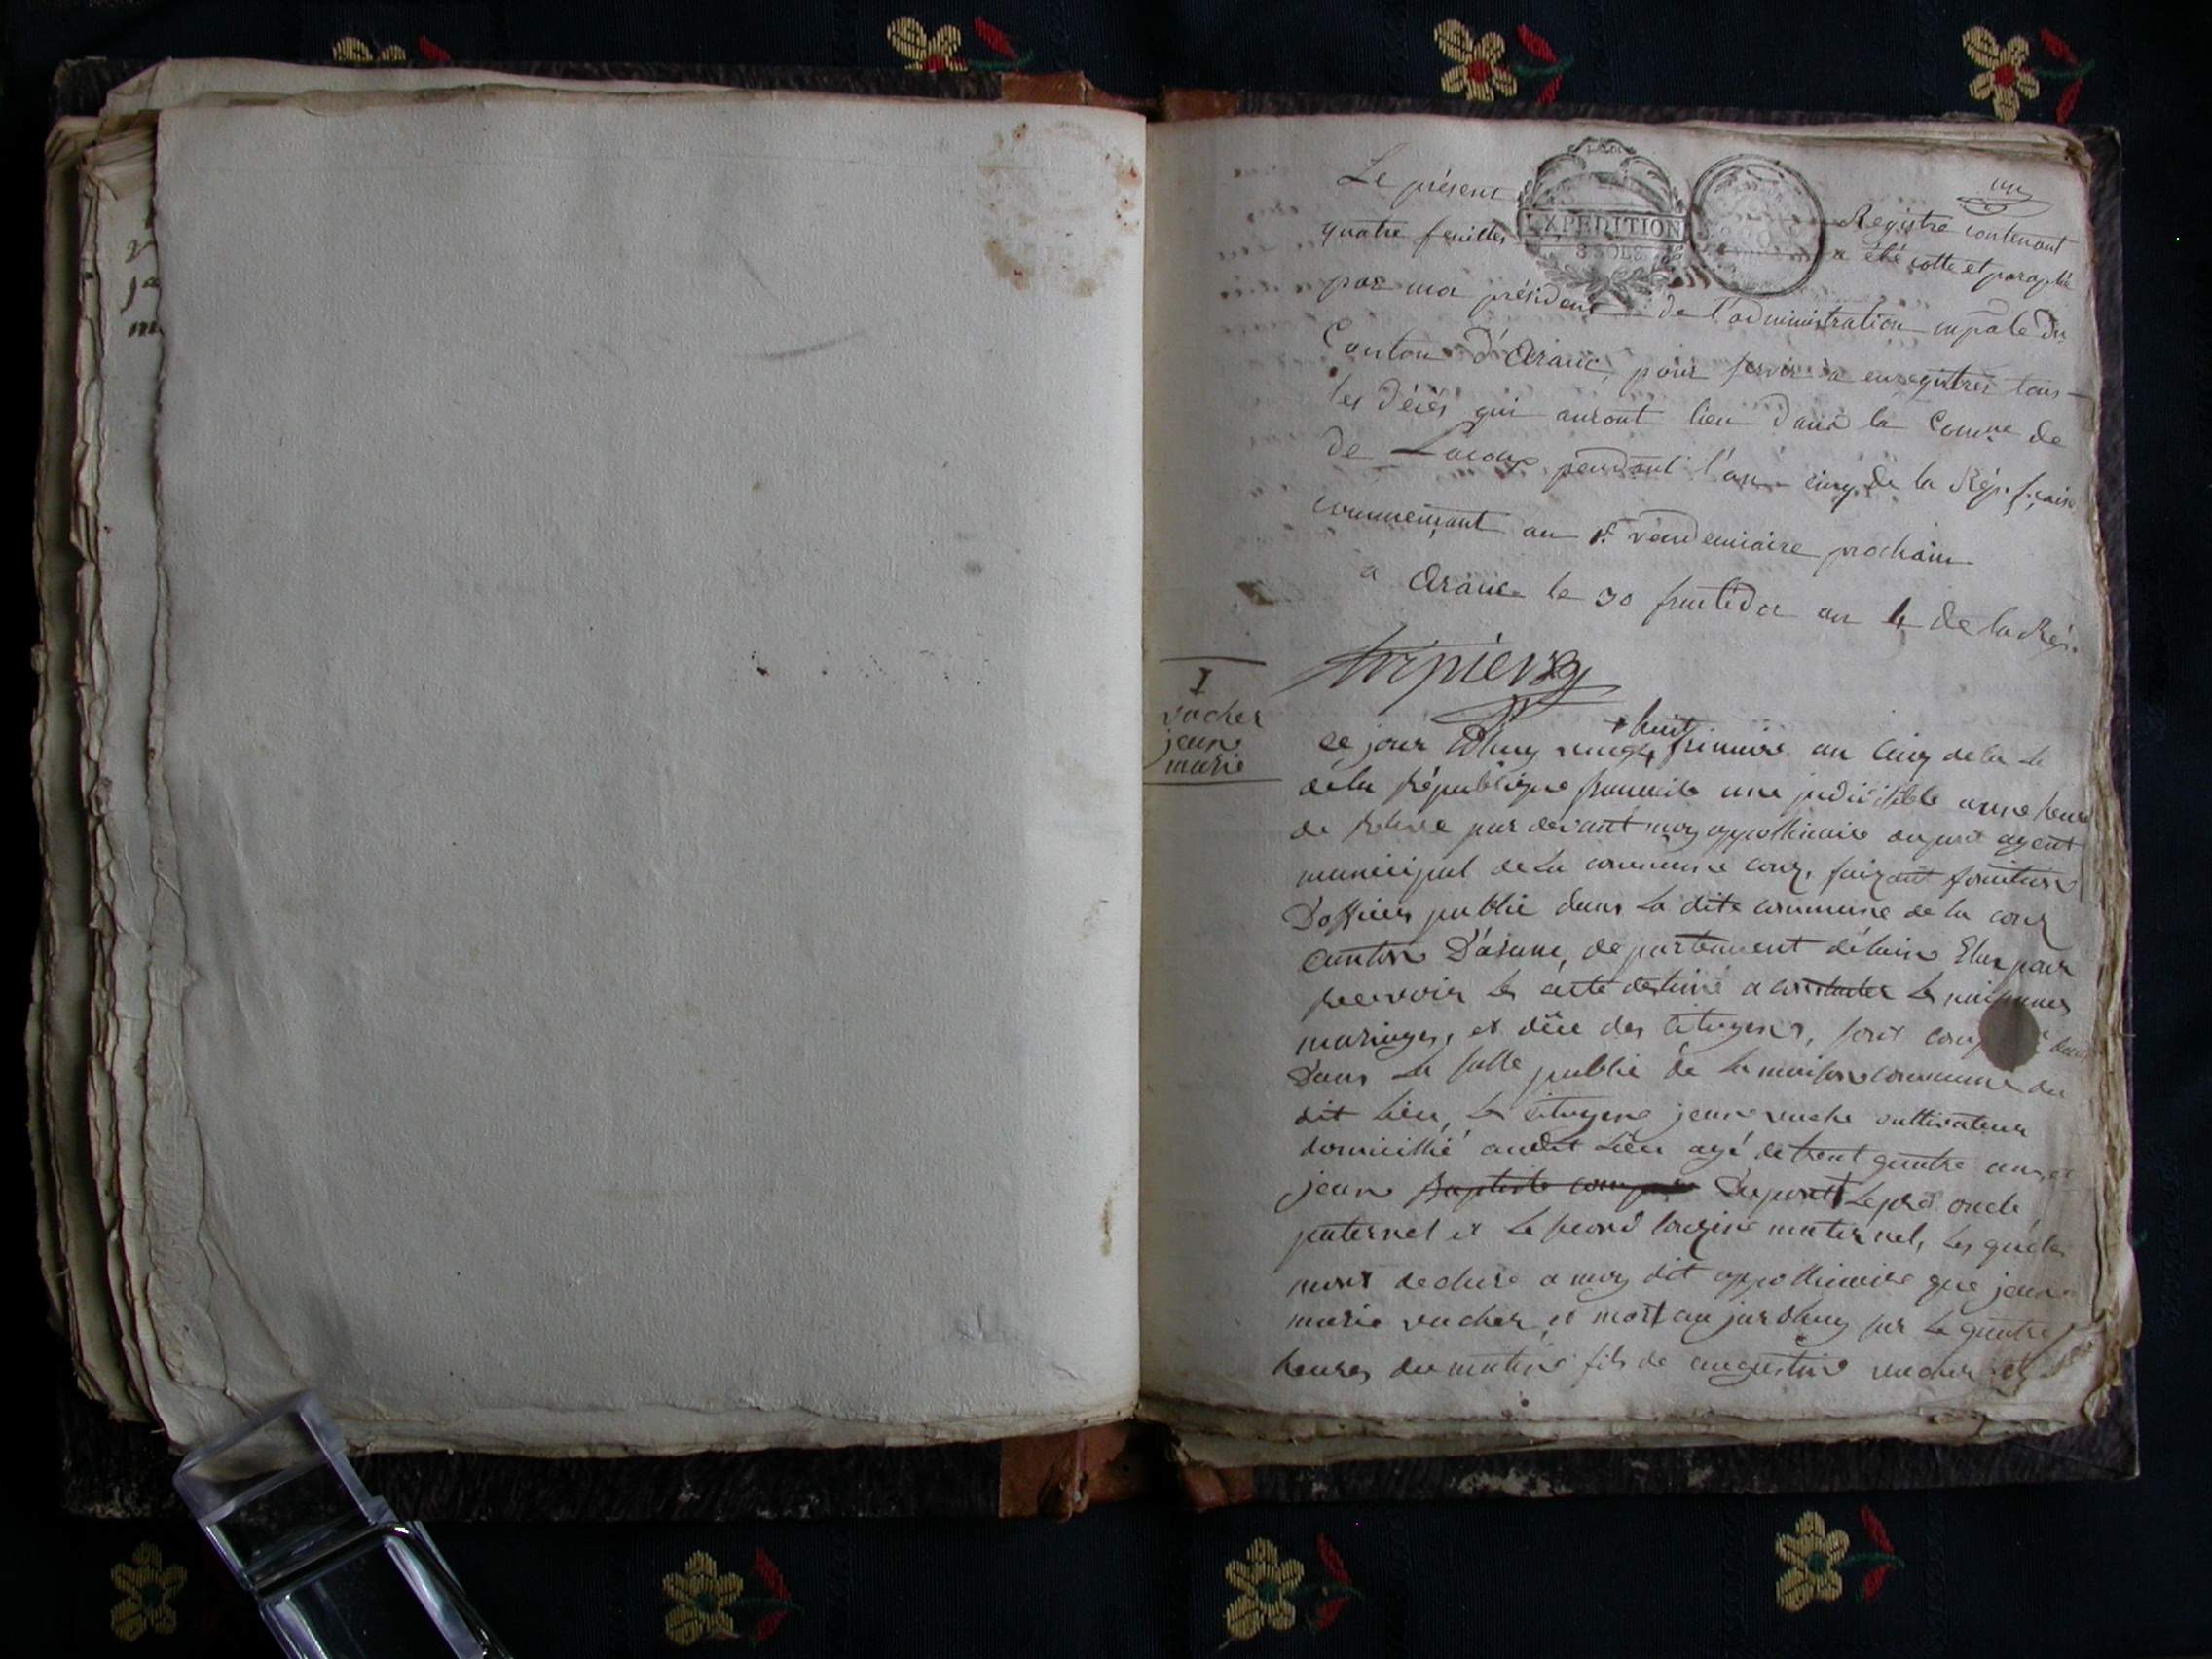 un
Le présent Registre contenant
EXPEDITION
3 SOLS
quatre feuilles a été cotté et paraphé
par moi président de l'administration mpale du
Canton d'Aranc, pour servir a enregistrer tous
les décès qui auront lieu dans la Comne de
de Lacoux pendant l'an cinq de la Rép. fçaise
commençant au 1er vendemiaire prochain
a Aranc le 30 fructidor an 4 de la Rép.
I
vacher
jean
marie
ce jour dhuy vingt huit frimaire an cinq de la
de la république francaise une indivisible a une heure
de par devant moy appollinaire dupont agent
municipal de la commune couz, faizant fonction
D'officier public dans La dite commune de la couz
canton D'aranc, departement delain Elus pour
recevoir Les acte destiné a constater Les naissances
mariages, et déce des citoyens, sont comp
Dans La salle public de La maison commune du
dit Lieu, Le citoyens jean vache cultivateur
domicillié audit Lieu agé de trent quatre ans, et
jean Baptiste Dupont Le pre oncle
paternel et Le second couzine maternel, Les quels
mont declare a moy dit appollinaire que jean
marie vacher et mort aujourdhuy sur Le quatre
heures du matine fils de augustin vacher et